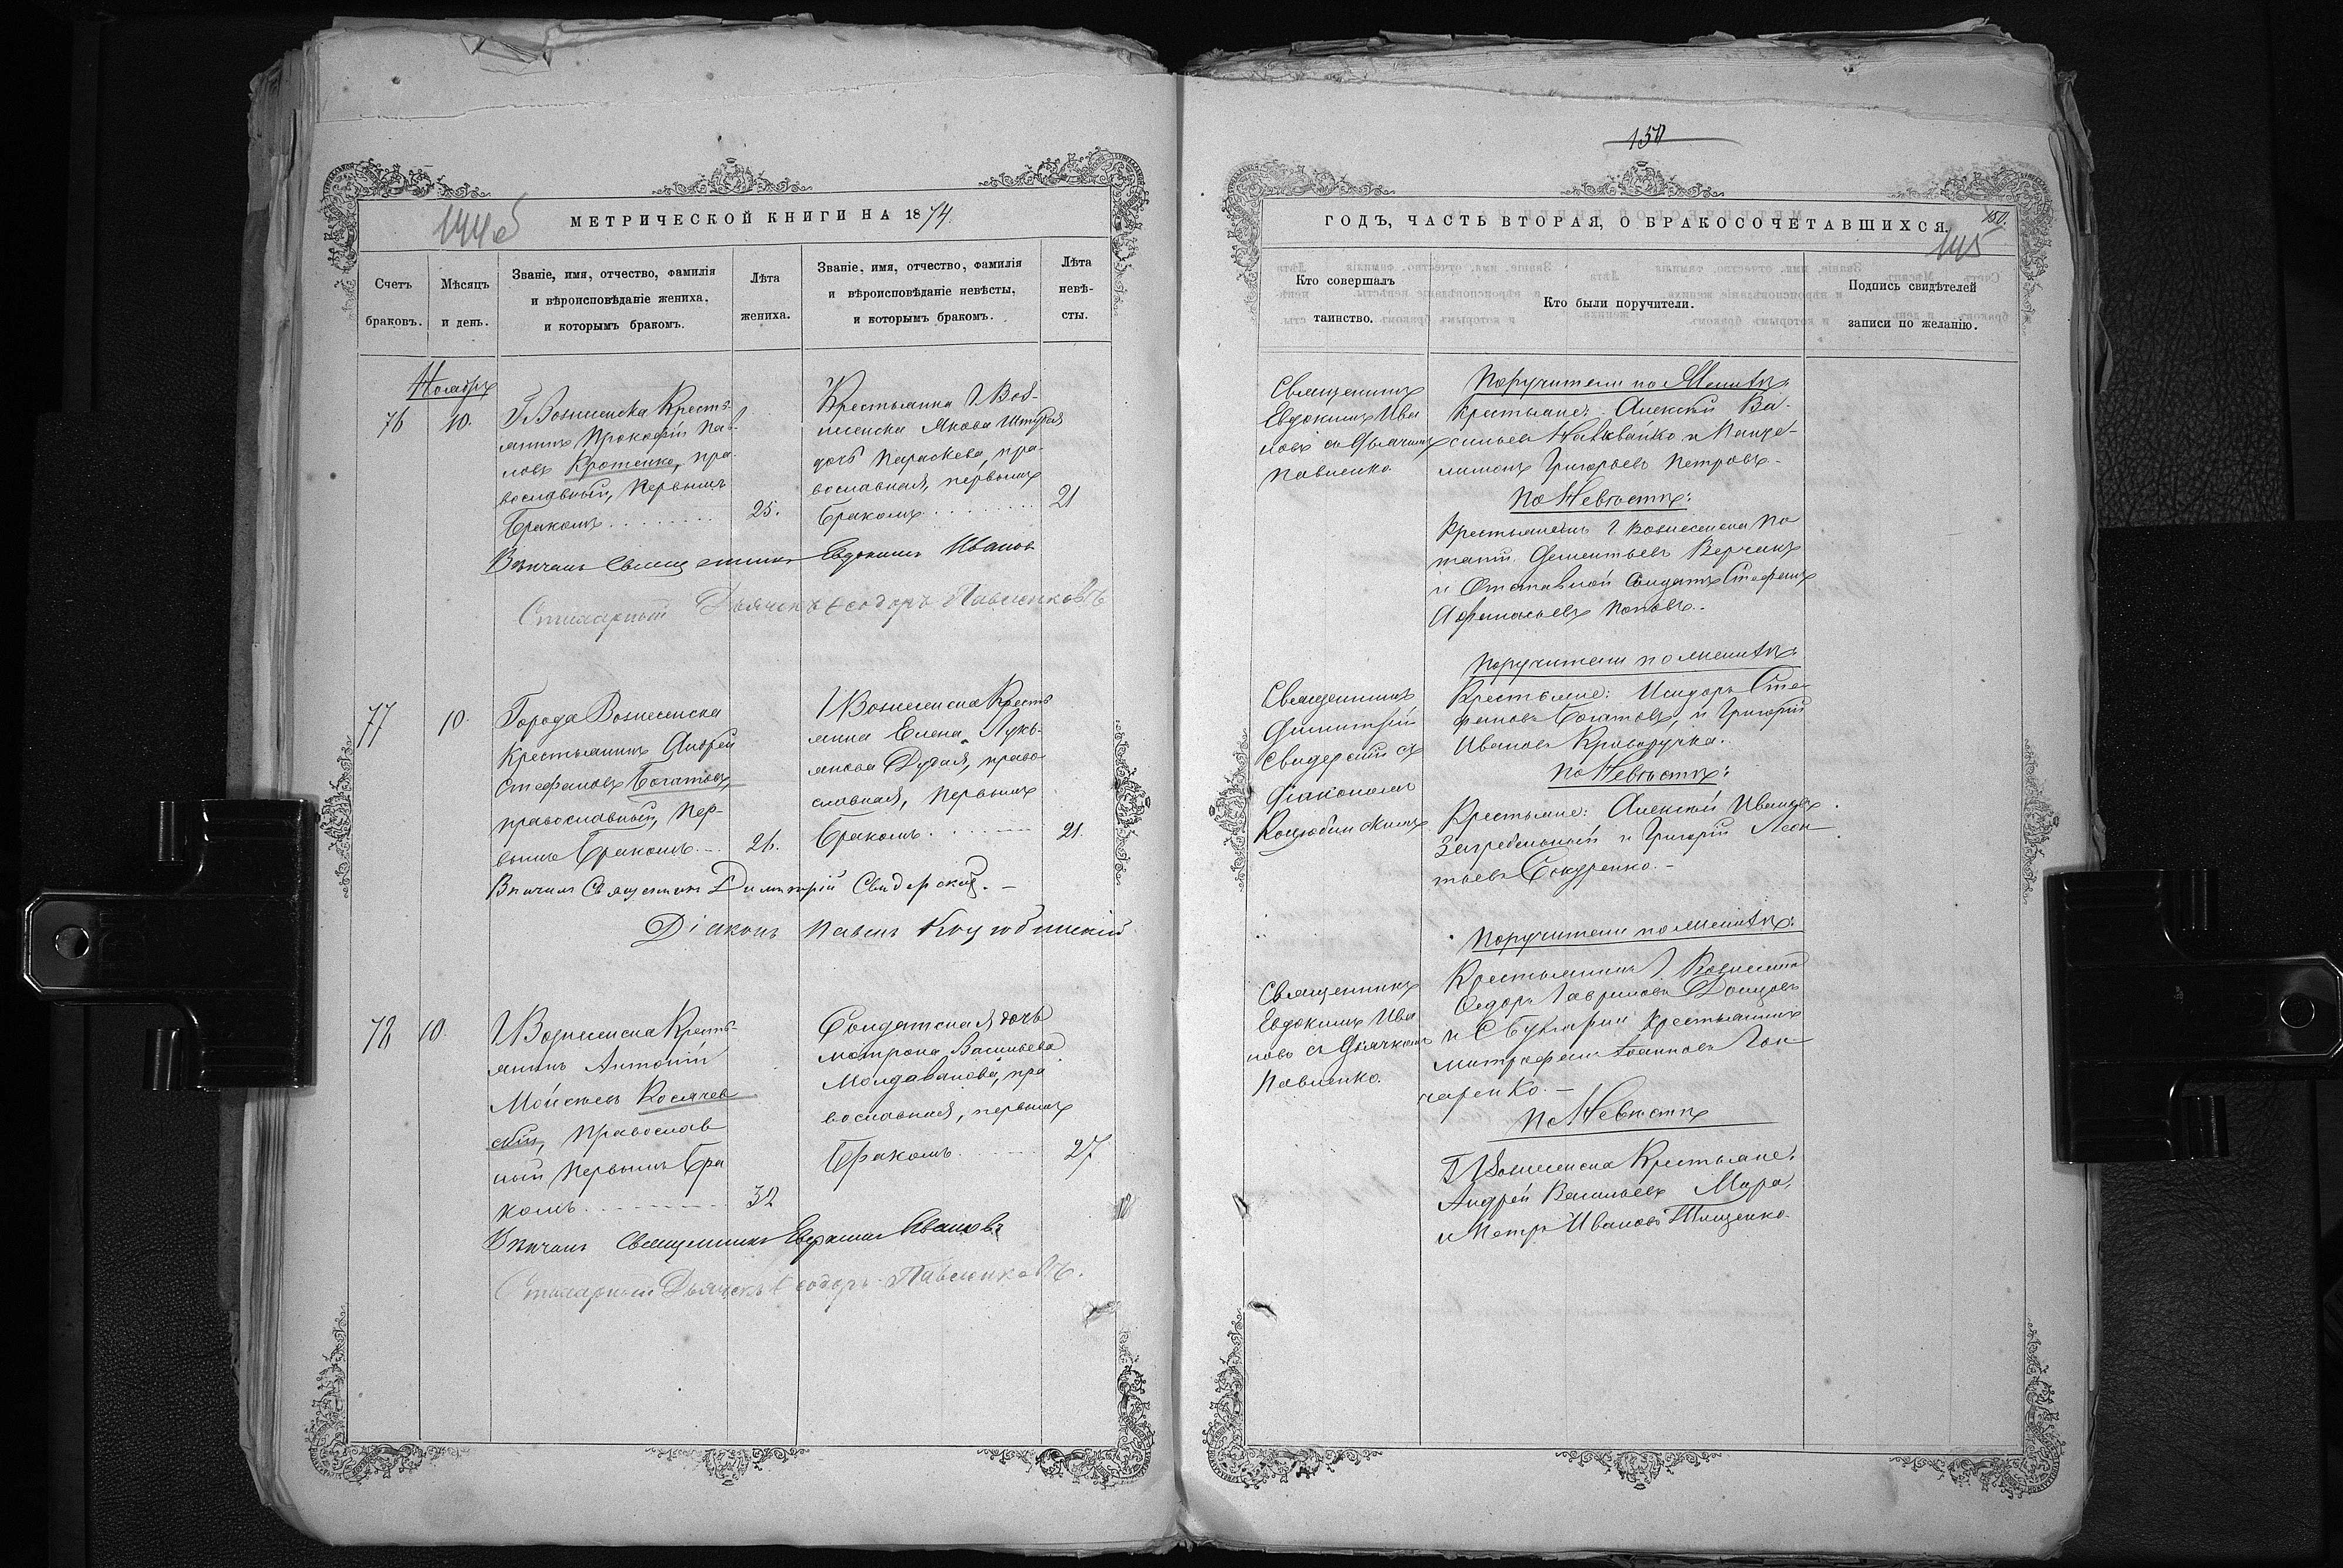 144об
МЕТРИЧЕСКОЙ КНИГИ НА 1874.
Счетъ браковъ.
Мѣсяцъ и день.
Званіе, имя, отчество, фамилія и вѣроисповѣданіе жениха, и которымъ бракомъ.
Лѣта жениха.
Званіе, имя, отчество, фамилія и вѣроисповѣданіе невѣсты, и которымъ бракомъ.
Лѣта невѣ-сты.
Ноябрь
76
10.
Г Вознесенска Кресть-
янинъ Прокофій Па-
ловъ Кротенко, пра-
вославный, первымъ
бракомъ
25.
Крестьянка Г. Воз-
несенска Якова
дочь Параскева, пра-
вославная, первымъ
бракомъ
21
Вѣнчалъ Священникъ Евдокимъ Ивановъ
Дьячекъ Ѳеодоръ Павленковъ
77
10.
Города Вознесенска
Крестьянинъ Андрей
Стефановъ Богатовъ,
православный, пер-
вымъ бракомъ
26.
Г Вознесенска Кресть
янка Елена Лукь-
янова Дубая, право
славная, первымъ
бракомъ
21.
Вѣнчалъ Священникъ Димитрій Свидерскій. –
Діаконъ Павелъ Коцюбинскій
78
10.
Г Вознесенска Кресть-
янинъ Антоній
Мойсеевъ Косячев
скій, православ
ный первымъ бра
комъ
32
Солдатская дочь
Матрона Васильева
Молдаванова, пра
вославная, первымъ
бракомъ
27
Вѣнчалъ Священникъ Евдокимъ Ивановъ
Дьячекъ Ѳеодоръ Павленковъ.
150
ГОДЪ, ЧАСТЬ ВТОРАЯ, О БРАКОСОЧЕТАВШИХСЯ.
150.
145
Кто совершалъ таинство.
Кто были поручители.
Подпись свидѣтелей записи по желанію.
Священникъ
Евдокимъ Ива
новъ съ Дьячкомъ
Павленко
Поручители по Женихѣ:
Крестьяне: Алексѣй Ва-
сильевъ Наливайко и Панте-
лимонъ Григорьевъ Петровъ.
По Невѣстѣ:
Крестьянинъ Г. Вознесенска По
тапій Дементьевъ Верчакъ
и Отставной Солдатъ Стефанъ
Афанасьевъ Поповъ.
Священникъ
Димитрій
Свидерскій съ
Діакономъ
Коцюбинскимъ
Поручители по женихѣ:
Крестьяне: Исидоръ Сте-
фановъ Богатовъ, и Григорій
Ивановъ Криворучка.
По Невѣстѣ:
Крестьяне: Алексѣй Ивановъ
Загребельный и Григорій Леон
тьевъ Бондаренко. –
Священникъ
Евдокимъ Ива
новъ съ Дьячкомъ
Павленко.
Поручители по женихѣ:
Крестьянинъ Г. Вознесенска
Ѳедоръ Гавриловъ Донцовъ
и С Булгарки Крестьянинъ
Митрофанъ Іоанновъ Гон
чаренко. –
По Невѣстѣ
Г Вознесенска Крестьяне:
Андрей Васильевъ Мара,
и Петръ Ивановъ Тищенко.